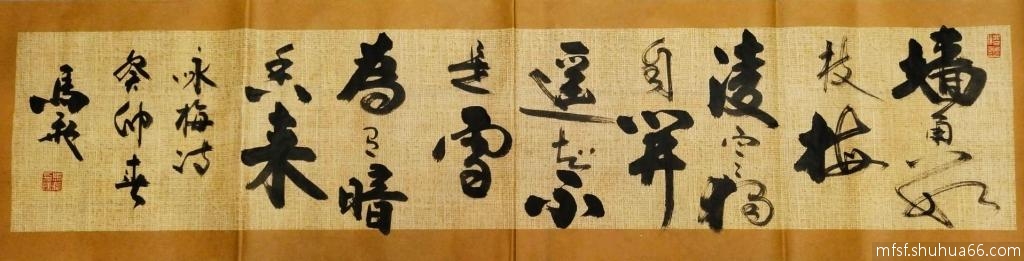 墙角数
枝梅
凌寒独
自開
遥知不
是雪
為有暗
香来
咏梅诗
癸卯春
馬
mfsf.shuhua66.com